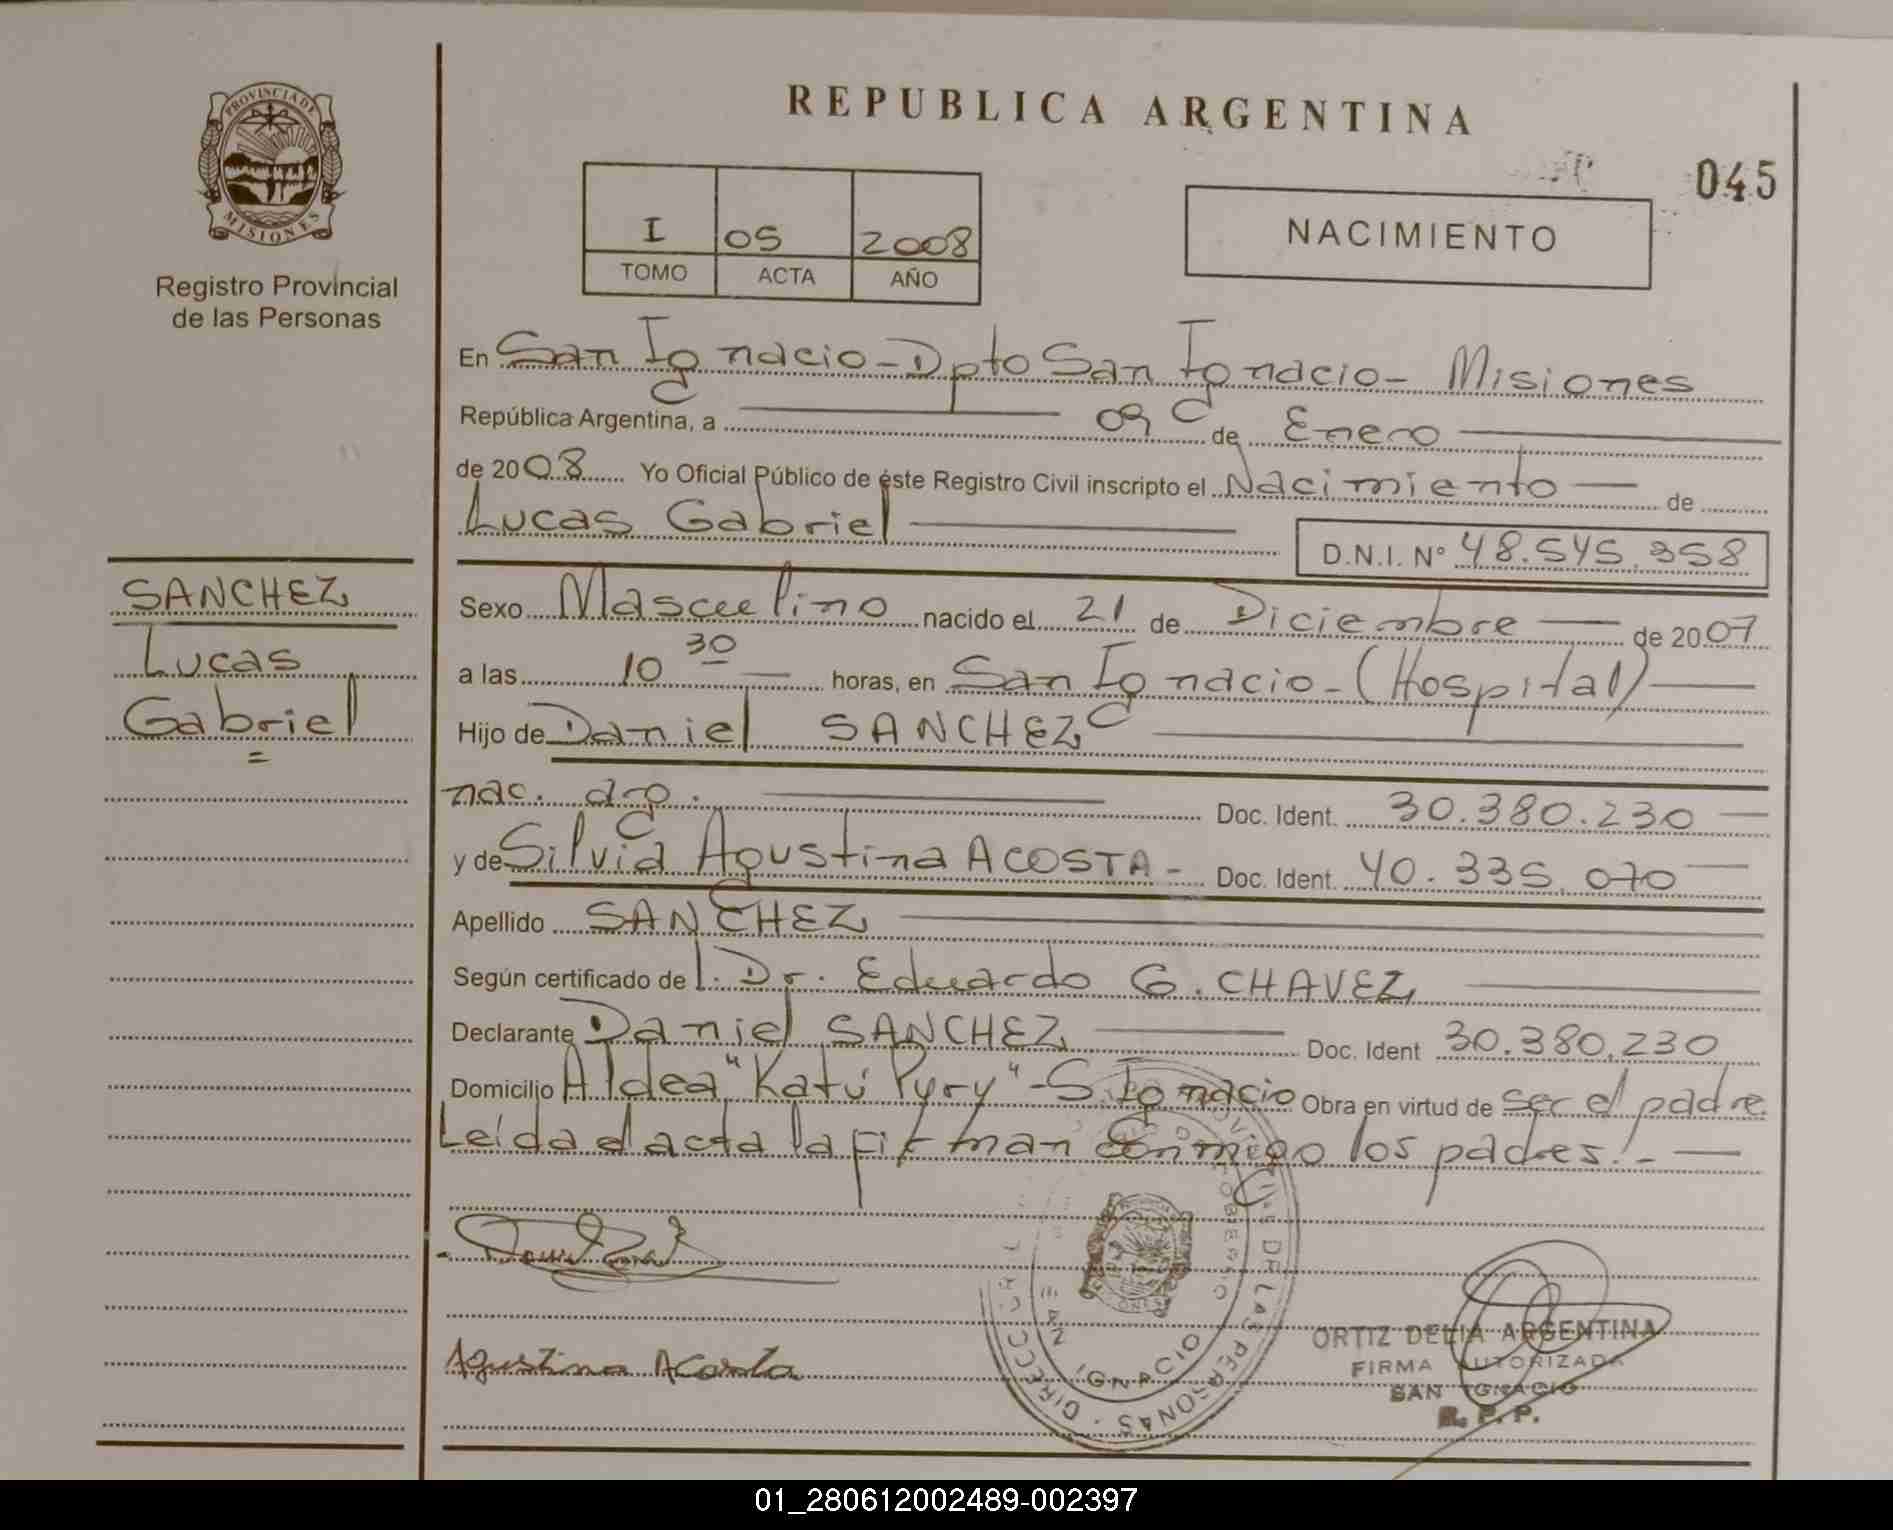 PROVINCIA DE
MISIONES
Registro Provincial
de las Personas
REPUBLICA ARGENTINA
045
I 05 2008
TOMO ACTA AÑO
NACIMIENTO
En San Ignacio - Dpto San Ignacio - Misiones
República Argentina, a 09 de Enero
de 2008 Yo Oficial Público de éste Registro Civil inscripto el Nacimiento de
Lucas Gabriel
D.N.I. Nº 48.545.358
SANCHEZ
Lucas
Gabriel
Sexo Masculino nacido el 21 de Diciembre de 2007
a las 10 30 horas, en San Ignacio - (Hospital)
Hijo de Daniel SANCHEZ
nac. arg. Doc. Ident. 30.380.230
y de Silvia Agustina ACOSTA - Doc. Ident. 40.335.070
Apellido SANCHEZ
Según certificado de l. Dr. Eduardo G. CHAVEZ
Declarante Daniel SANCHEZ Doc. Ident 30.380.230
Domicilio Aldea "Katú Pyry" - S. Ignacio Obra en virtud de ser el padre
Leída el acta la firman conmigo los padres.-
Agustina Acosta
SAN IGNACIO
DE LAS PERSONAS
ORTIZ DELIA ARGENTINA
FIRMA AUTORIZADA
SAN IGNACIO
R. P. P.
01_280612002489-002397